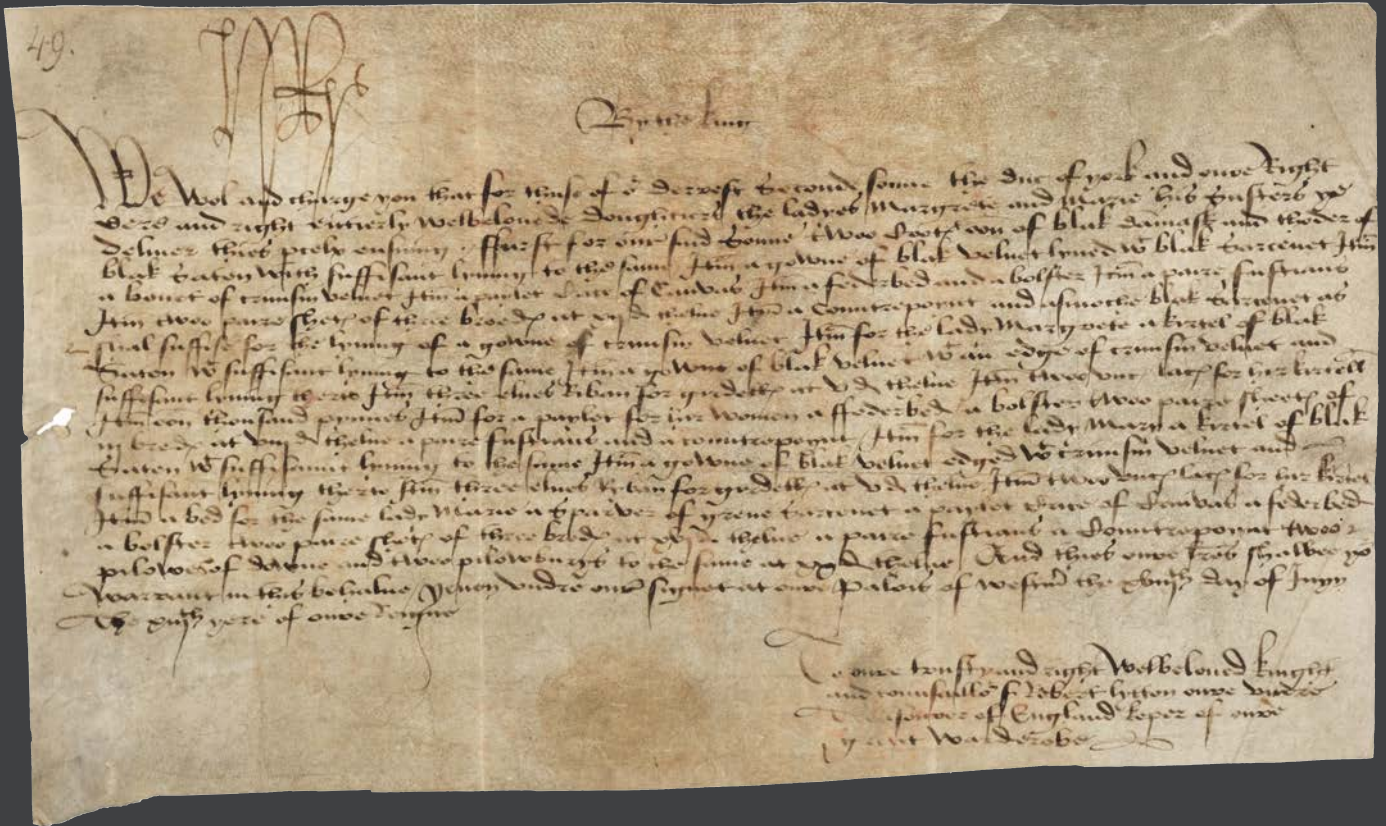 49.
HR
By the king
We Wol and charge you that for thuse of oʳ derrest Seconde sonne the duc of york and oure Right
dere and right entierly welbelouede doughturs the ladyes Margrete and Marie his Susters ye
deliuer thies pcelx ensuing ffurst for our said Sonne twoo Cootx oon of blak damask and thoder of
blak Saten with suffisant lynyng to the same Itm a gowne of blak veluet lyned wᵗ blak Sarcenet Itm
a bonet of crimsin veluet Itm a paylet Cace of Canvas Itm a federbed and a bolster Itm a paire fustians
Itm twoo paire shetx of thre bredx at xijd thelne Itm a Countrepoynt and asmoche blak Sarcenet as
shal suffise for the lynyng of a gowne of crimsin veluet Itm for the lady Margrete a kirtel of blak
Saten wᵗ suffisant lynyng to the same Itm a gowne of blak veluet wᵗ an edge of crimsin veluet and
suffisant lynyng therto Itm three elnes Riban for girdellx at vd thelne Itm twoo uncx lacx for hir kirtell
Itm oon thousand pynnes Itm for a paylet for hir women a ffederbed a bolster twoo paire sheetx of
iij bredx at viijd thelne a paire fustians and a countrepoynt Itm for the lady Mary a kirtel of blak
Saten wᵗ suffisaunt lynyng to the same Itm a gowne of blak veluet edged wᵗ crimsin veluet and
suffisant lynyng therto Itm three elnes Ryban for girdellx at vd thelne Itm twoo uncx lacx for hir kirtel
Itm a bed for the same lady Marie a Sparver of grene Sarcenet a paylet Cace of Canvas a federbed
a bolster twoo paire shetx of thre bredx at thelne a paire fustians a Countrepoynt twoo
pilowes of downe and twoo pilowberys to the same at thelne And thies oure lres shalbee yoʳ
warrant in this behalue Yeuen undre our signet at oure Palois of Westmʳ the xviijth day of
The xiijth yere of oure Reigne
To oure trusty and right Welbeloued knight
and counsaillor sʳ Robert lytton oure undre
Tresourer of England keper of oure
grant Warderobe